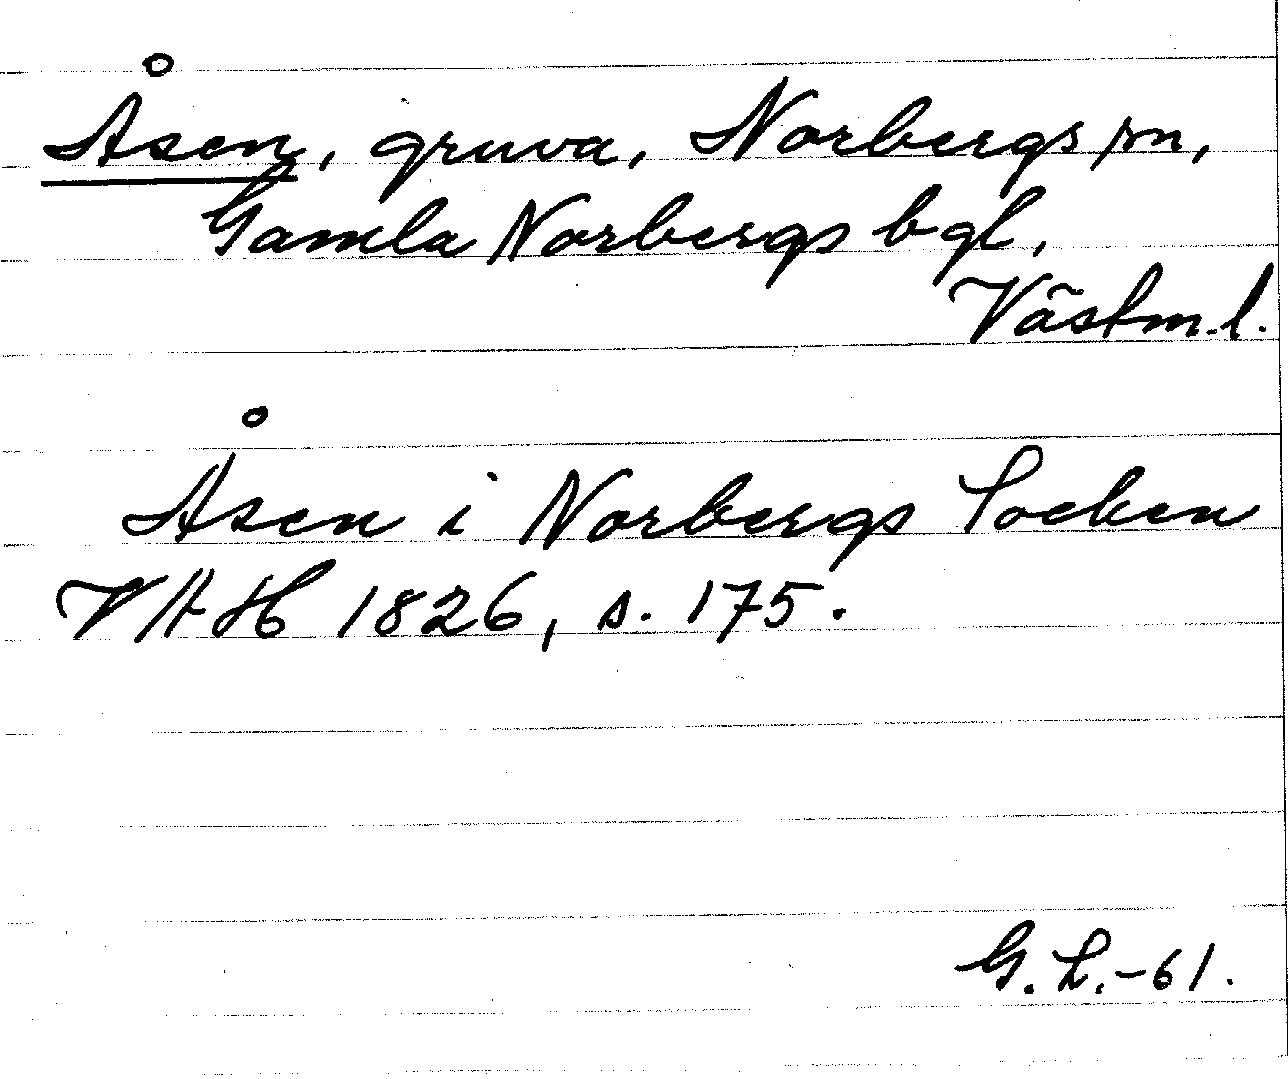 Åsen, gruva, Norbergs sn,
Gamla Norbergs bgl,
Västm.l.
Åsen i Norbergs Socken
VAH 1826, s. 175.
G.L.-61.